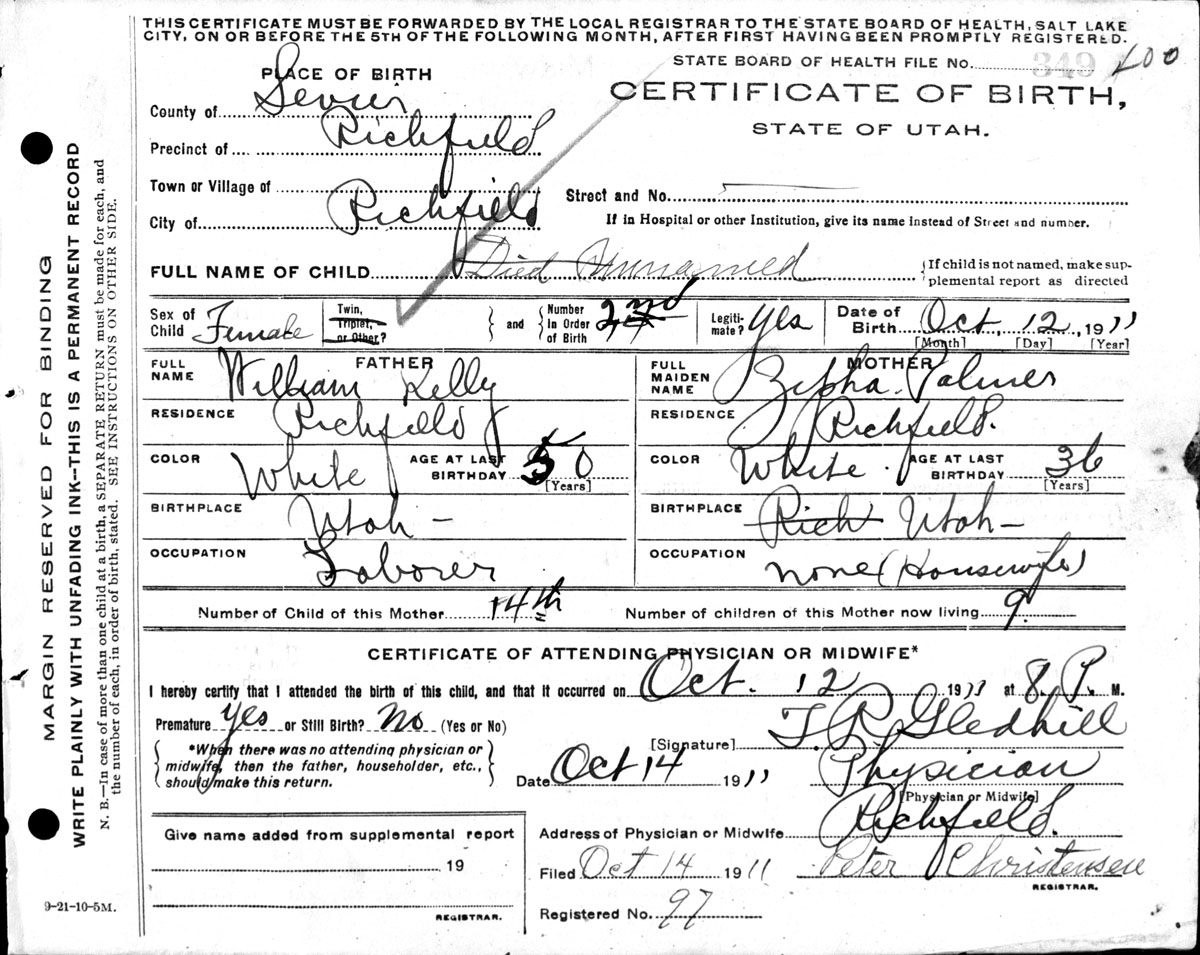 THIS CERTIFICATE MUST BE FORWARDED BY THE LOCAL REGISTRAR TO THE STATE BOARD OF HEALTH, SALT LAKE
CITY, ON OR BEFORE THE 5TH OF THE FOLLOWING MONTH, AFTER FIRST HAVING BEEN PROMPTLY REGISTERED.
STATE BOARD OF HEALTH FILE No. 349 400
PLACE OF BIRTH
CERTIFICATE OF BIRTH,
STATE OF UTAH.
County of Sevier
Precinct of Richfield
Town or Village of
Street and No.
City of Richfield
If in Hospital or other Institution, give its name instead of Street and number.
FULL NAME OF CHILD Died Unnamed
If child is not named, make sup-
plemental report as directed
Sex of Child Female
Twin, Triplet, or Other?
and
Number in Order of Birth 2nd
Legiti-mate? Yes
Date of Birth Oct. 12, 1911
[Month] [Day] [Year]
FATHER
MOTHER
FULL NAME William Kelly
FULL MAIDEN NAME Zipha Palmer
RESIDENCE Richfield
RESIDENCE Richfield.
COLOR White AGE AT LAST BIRTHDAY 50 [Years]
COLOR White. AGE AT LAST BIRTHDAY 36 [Years]
BIRTHPLACE Utah -
BIRTHPLACE Rich Utah -
OCCUPATION Laborer
OCCUPATION none (Housewife)
Number of Child of this Mother 14th
Number of children of this Mother now living 9
CERTIFICATE OF ATTENDING PHYSICIAN OR MIDWIFE*
I hereby certify that I attended the birth of this child, and that it occurred on Oct. 12 1911 at 8 P. M.
Premature Yes or Still Birth? No (Yes or No)
[Signature] T. R. Gledhill
*When there was no attending physician or
midwife, then the father, householder, etc.,
should make this return.
Date Oct 14 1911 Physician
[Physician or Midwife]
Give name added from supplemental report
19
REGISTRAR.
Address of Physician or Midwife Richfield.
Filed Oct 14 1911 Peter Christensen
REGISTRAR.
Registered No. 97
9-21-10-5M.
MARGIN RESERVED FOR BINDING
WRITE PLAINLY WITH UNFADING INK—THIS IS A PERMANENT RECORD
N. B.—In case of more than one child at a birth, a SEPARATE RETURN must be made for each, and
the number of each, in order of birth, stated. SEE INSTRUCTIONS ON OTHER SIDE.